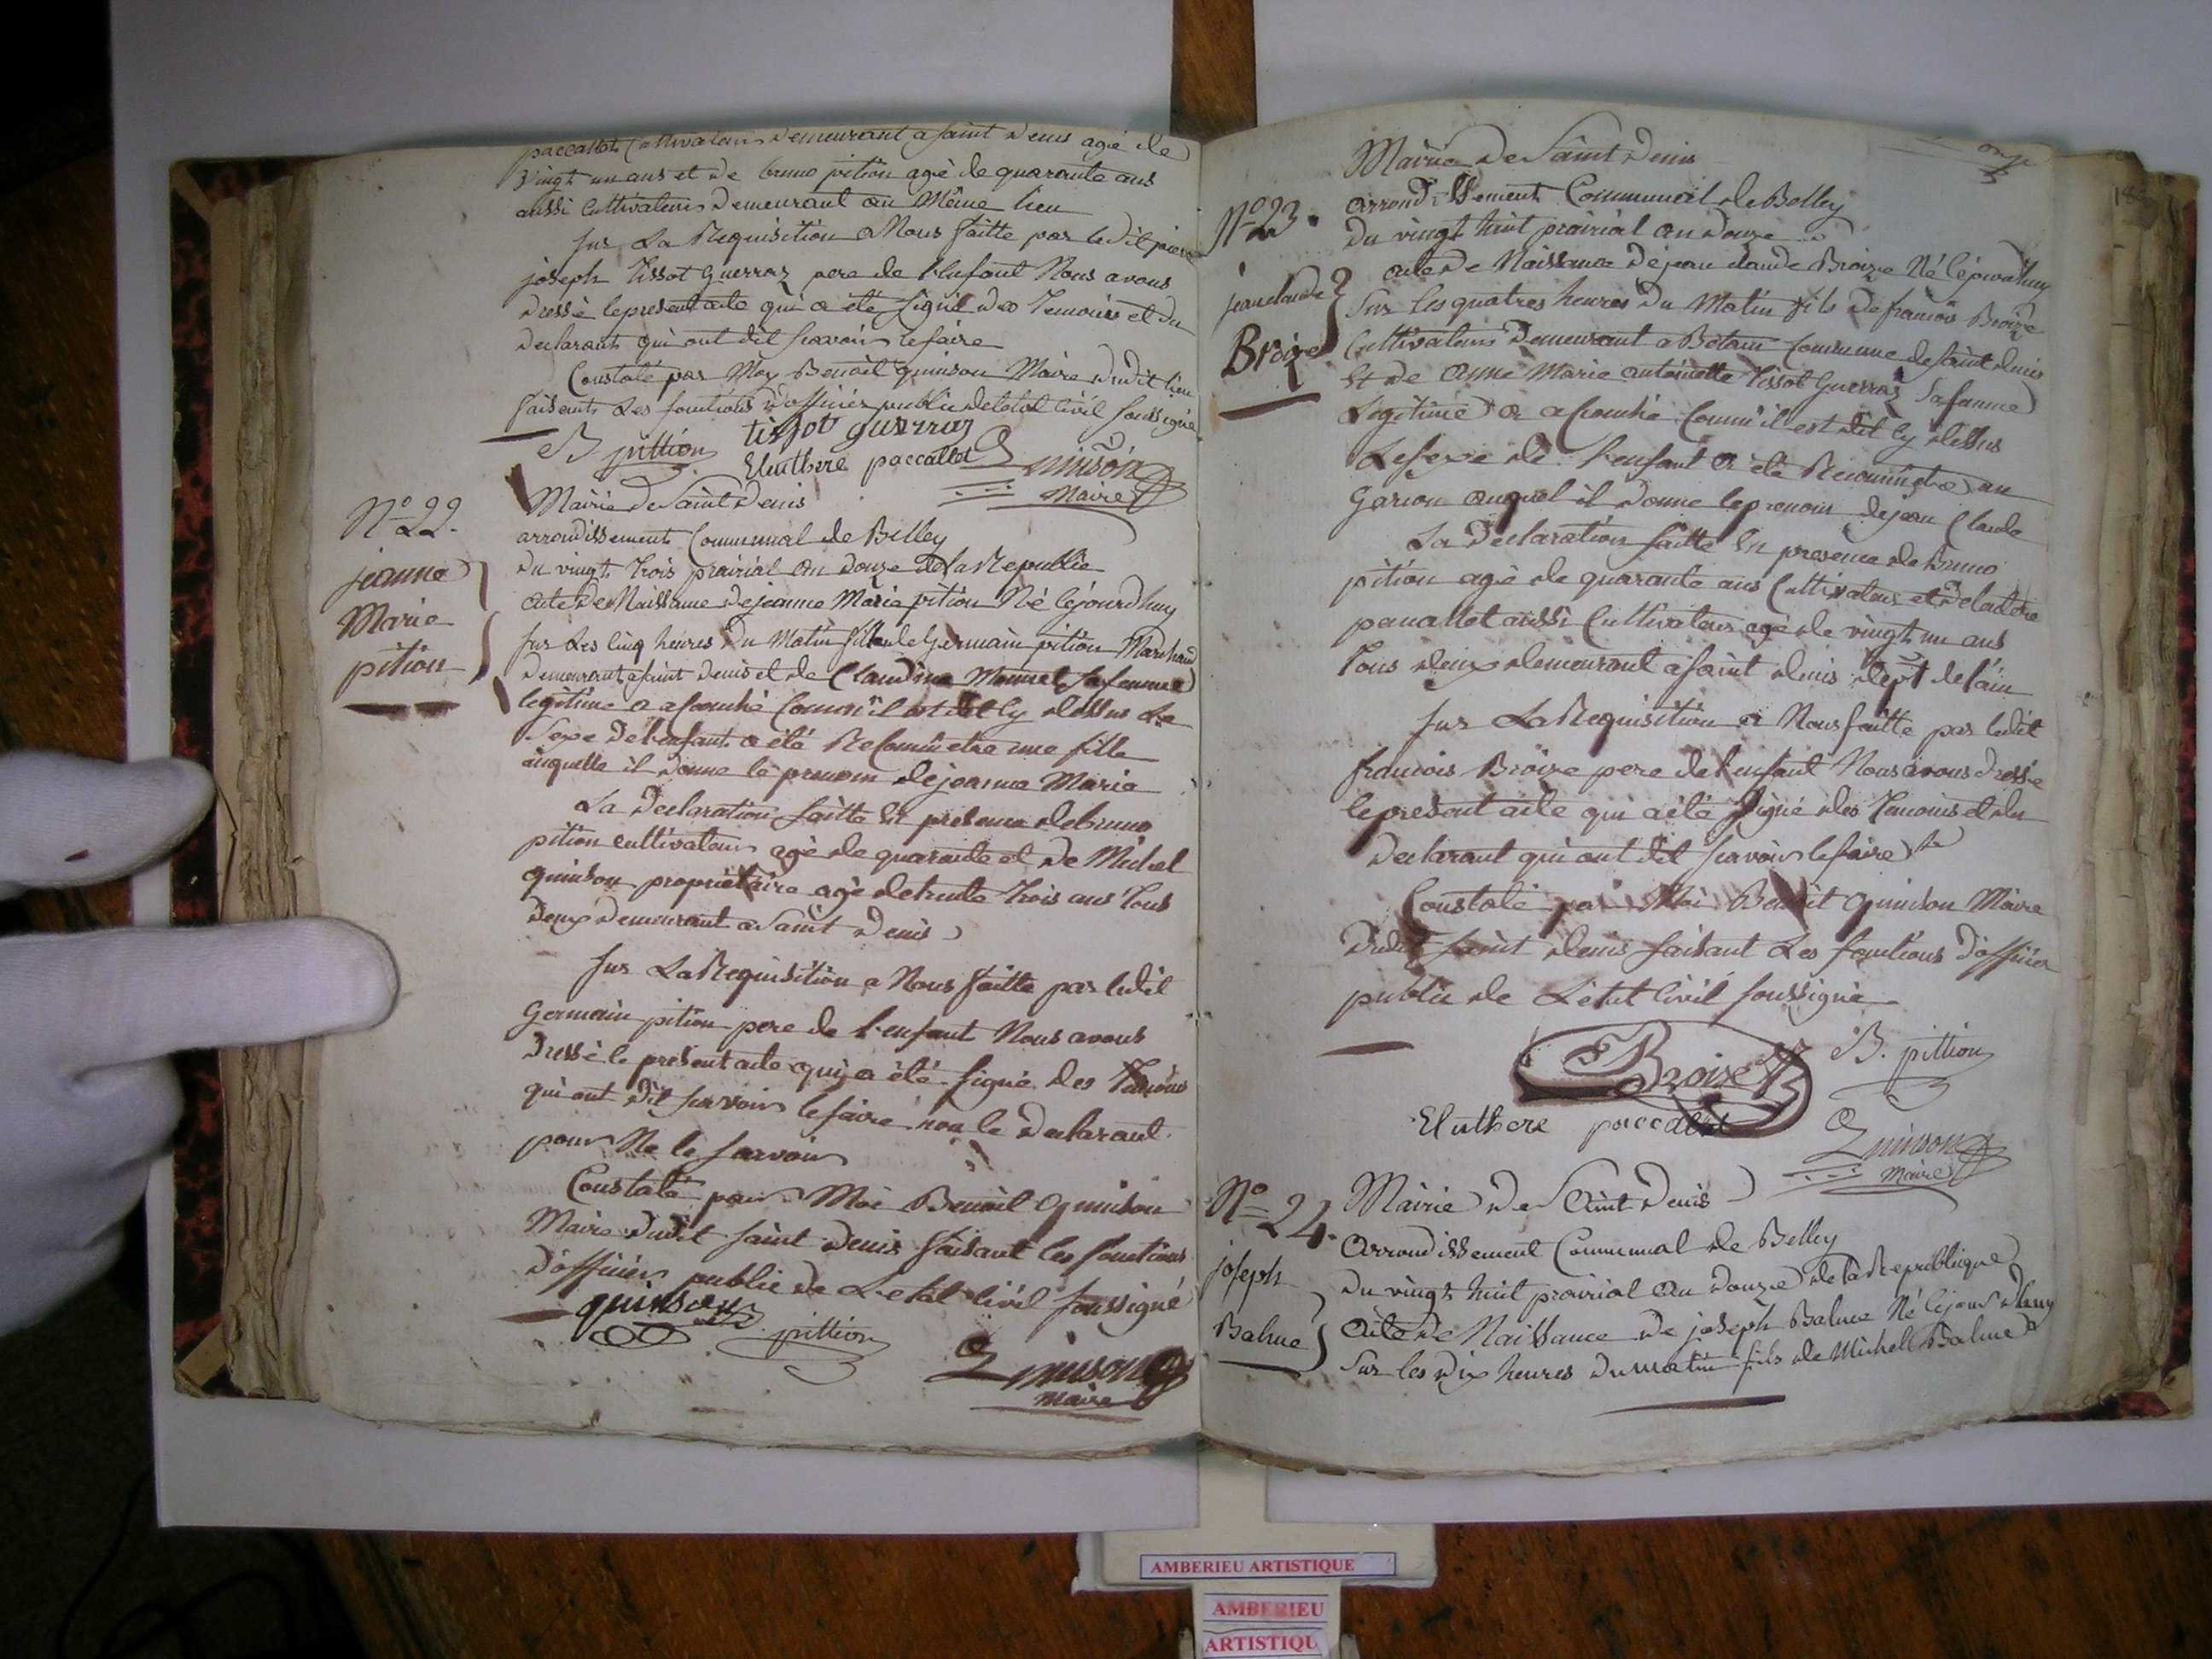 paccallet Cultivateur demeurant a saint denis agé de
vingt un ans et de bruno pition agé de quarante ans
aussi Cultivateur Demeurant au Même lieu
sur La Requisition a Nous faitte par ledit piere
joseph tissot Guerraz pere de l'enfant Nous avons
dressé le present acte qui a été signé des temoins et du
declarant qui ont dit scavoir le faire
Constaté par Moy Benoit quinson Maire dudit lieu
faisant Les fonctions d'officier public de letat Civil soussigné
B pittion tissot guerraz
Eluthere paccallet Quinson
Maire
N° 22.
jeanne
Marie
pition
Mairie de Saint Denis
arrondissement Communal de Belley
du vingt trois prairial an douze de la Republic
acte de Naissance de jeanne Marie pition Né le jourdhuy
sur Les Cinq heures du Matin fille de Germain pition Marchand
demeurant a saint Denis et de Claudine Monnet sa femme
legitime a acouché Comm'il est dit Cy dessus Le
sexe de l'enfant a été Reconnu etre une fille
auquelle il donne le prenom de jeanne Marie
La Declaration faitte En presence de bruno
pition cultivateur agé de quarante et de Michel
quinson proprietaire agé de trente trois ans tous
deux demeurant a Saint Denis
sur La Requisition a Nous faitte par ledit
Germain pition pere de l'enfant Nous avons
dressé le present acte qui a été signé des Temoins
qui ont dit scavoir le faire non le declarant
pour Ne le scavoir
Constaté par Moi Benoit Quinson
Maire dudit saint Denis faisant les fonctions
d'officier public de L'etat Civil soussigné
quinson
pittion
Quinson
Maire
onze
18
Mairie de Saint Denis
N° 23.
arrondissement Communal de Belley
du vingt huit prairial an douze
jean claude
Broize
acte de Naissance de jean claude Broize Né le jourdhuy
sur les quatres heures du Matin fils de francois Broize
Cultivateur Demeurant a Betam Commune de saint denis
Et de anne Marie antoinette tissot Guerraz sa femme
Legitime a acouché Comm'il est dit Cy dessus
Le sexe de l'enfant a été Reconnu etre un
Garcon auquel il donne le prenom de jean Claude
La declaration faitte En presence de Bruno
pition agé de quarante ans Cultivateur et
paccallet aussi Cultivateur agé de vingt un ans
tous deux demeurant a saint denis dept de l'ain
sur La Requisition a Nous faitte par ledit
francois Broize pere de l'enfant Nous avons dressé
le present acte qui a été signé des temoins et du
declarant qui ont dit scavoir le faire
Constaté par Moi Benoit Quinson Maire
dudit saint denis faisant Les fonctions d'officier
public de L'etat Civil soussigné
Broize B. pittion
Eluthere paccallet
Quinson
Maire
N° 24.
joseph
Balme
Mairie de Saint Denis
arrondissement Communal de Belley
du vingt huit prairial an douze de la Republique
acte de Naissance de joseph Balme Né le jour dhuy
sur les dix heures du matin fils de Michel Balme
AMBERIEU ARTISTIQUE
AMBERIEU
ARTISTIQU